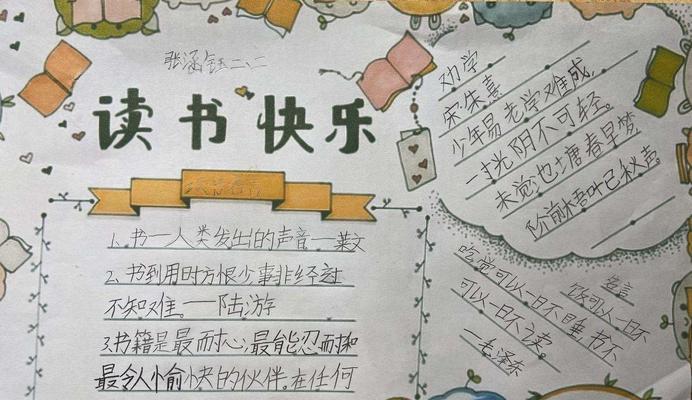 张涵钰二、二
读书快乐
1、书—人类发出的声音——莱文
2、书到用时方恨少事非经过
不知难。——陆游
3、书籍是最耐心,最能忍耐和
最令人愉快的伙伴。在任何
劝学
宋朱熹
少年易老学难成,
一寸光阴不可轻。
未觉池塘春早梦
阶前梧叶已秋声
名言
饭可以一日不
吃觉可以一日不睡,书不
可以一日不读。
—毛泽东